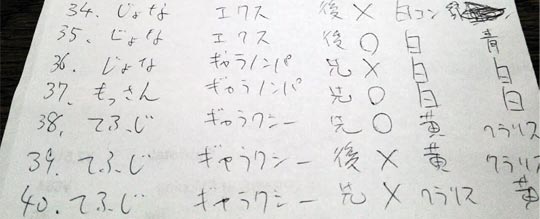 34. じょな エクス 後 × 白コン
35. じょな エクス 後 ○ 白 青
36. じょな ギャラノンパ 先 × 白 白
37. もっさん ギャラノンパ 先 ○ 白 白
38. てふじ ギャラクシー 先 ○ 黄 クラリス
39. てふじ ギャラクシー 後 × 黄 クラリス
40. てふじ ギャラクシー 先 × クラリス 黄